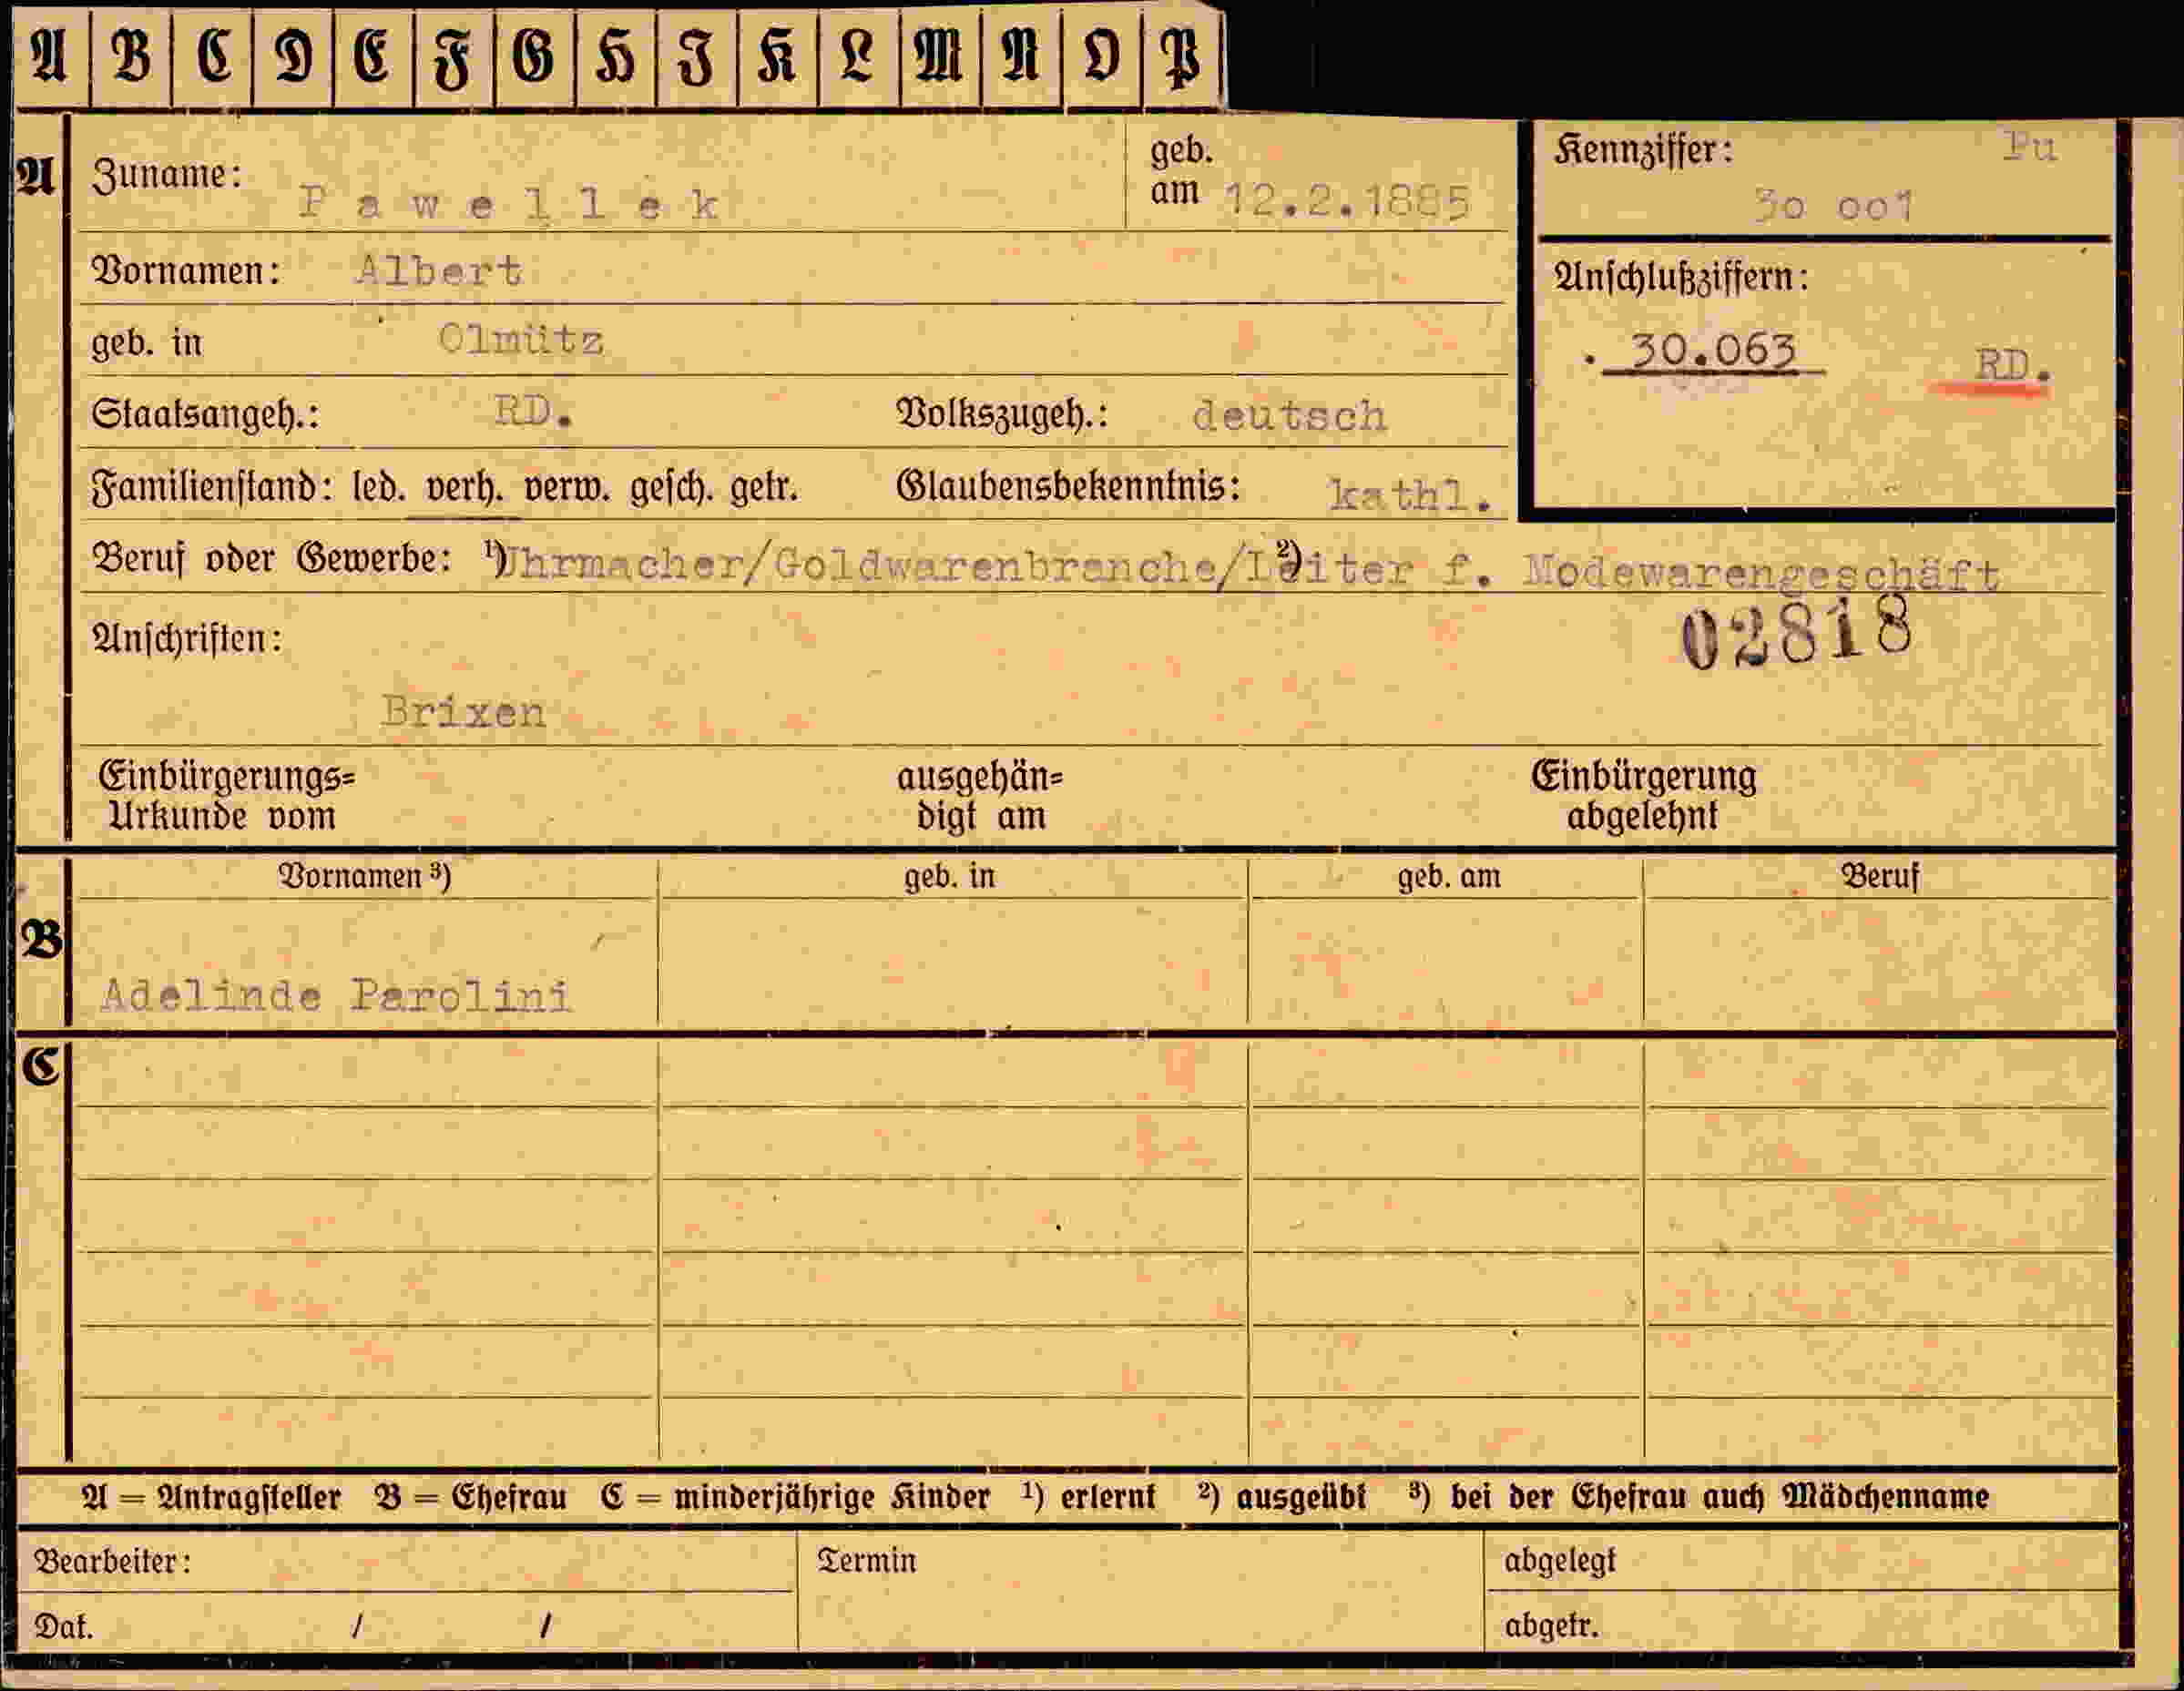 A B C D E F G H I K L M N O P
A Zuname: Pawellek geb. am 12.2.1885
Kennziffer: Pu
30 001
Vornamen: Albert
Anschlußziffern:
geb. in Olmütz
. 30.063 RD.
Staatsangeh.: RD. Volkszugeh.: deutsch
Familienstand: led. verh. verw. gesch. getr. Glaubensbekenntnis: kathl.
Beruf oder Gewerbe: ¹) Uhrmacher/Goldwarenbranche/ ²) Leiter f. Modewarengeschäft
Anschriften: 02818
Brixen
Einbürgerungs= ausgehän= Einbürgerung
Urkunde vom digt am abgelehnt
Vornamen ³) geb. in geb. am Beruf
B
Adelinde Parolini
C
A = Antragsteller B = Ehefrau C = minderjährige Kinder ¹) erlernt ²) ausgeübt ³) bei der Ehefrau auch Mädchenname
Bearbeiter: Termin abgelegt
Dat. / / abgetr.